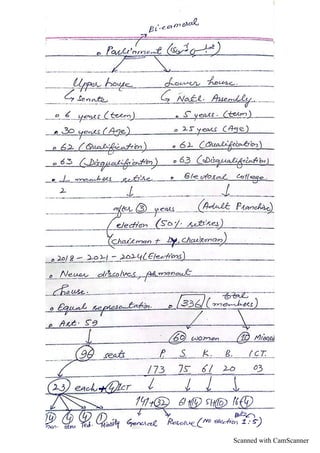 Bi-cameral
Parliament
Upper house Lower house
Senate Natl. Assembly
6 years (term) 5 years (term)
30 years (Age) 25 years (Age)
62 (Qualification) 62 (Qualification)
63 (Disqualification) 63 (Disqualification)
1 members retire Electoral college
2
after 3 years (Adult Franchise)
election (50% retires)
(Chairman + Dy. chairman)
2018 - 2021 - 2024 (Elections)
Never dissolves, permanent
house.
total
Equal representation 336 (members)
Art. 59
60 women 10
96 seats P. S. K. B. ICT.
173 75 61 20 03
23 each + 4 ICT
141+32 61+14 51+10 16+4
14 4 4 1 General Reserve
Scanned with CamScanner